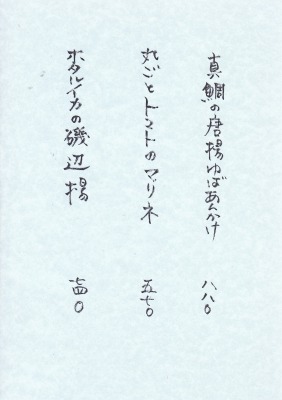 真鯛の唐揚ゆばあんかけ 八八〇
丸ごとトマトのマリネ 五七〇
ホタルイカの磯辺揚 七四〇